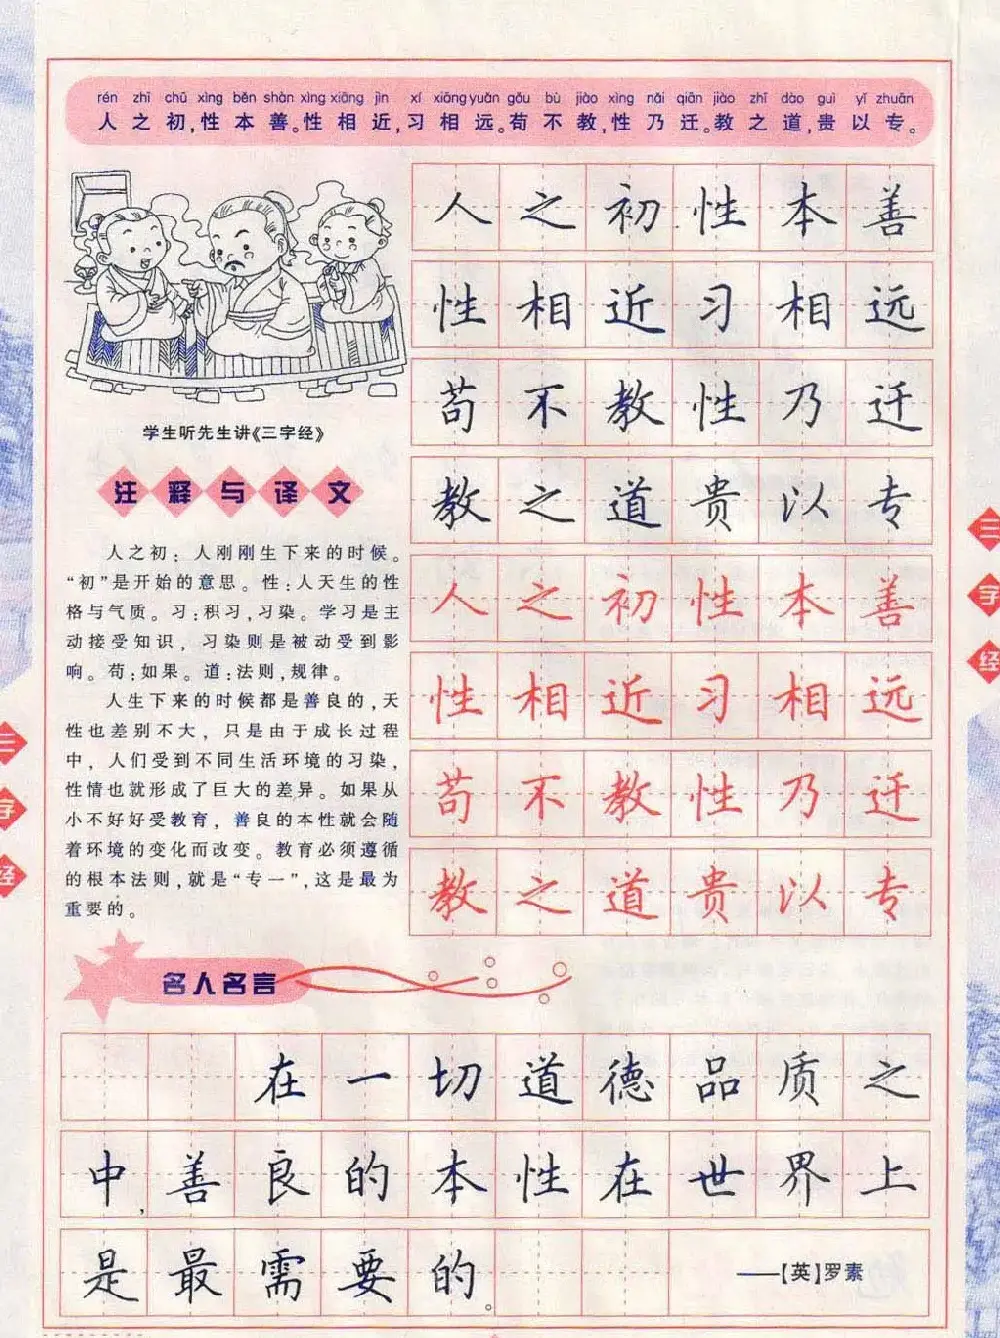 rén zhī chū xìng běn shàn xìng xiāng jìn xí xiāng yuǎn gǒu bù jiào xìng nǎi qiān jiào zhī dào guì yǐ zhuān
人之初,性本善。性相近,习相远。苟不教,性乃迁。教之道,贵以专。
人之初性本善
性相近习相远
苟不教性乃迁
教之道贵以专
人之初性本善
性相近习相远
苟不教性乃迁
教之道贵以专
学生听先生讲《三字经》
注释与译文
人之初:人刚刚生下来的时候。
“初”是开始的意思。性:人天生的性
格与气质。习:积习,习染。学习是主
动接受知识,习染则是被动受到影
响。苟:如果。道:法则,规律。
人生下来的时候都是善良的,天
性也差别不大,只是由于成长过程
中,人们受到不同生活环境的习染,
性情也就形成了巨大的差异。如果从
小不好好受教育,善良的本性就会随
着环境的变化而改变。教育必须遵循
的根本法则,就是“专一”,这是最为
重要的。
名人名言
在一切道德品质之
中,善良的本性在世界上
是最需要的。
——【英】罗素
三字经
三字经